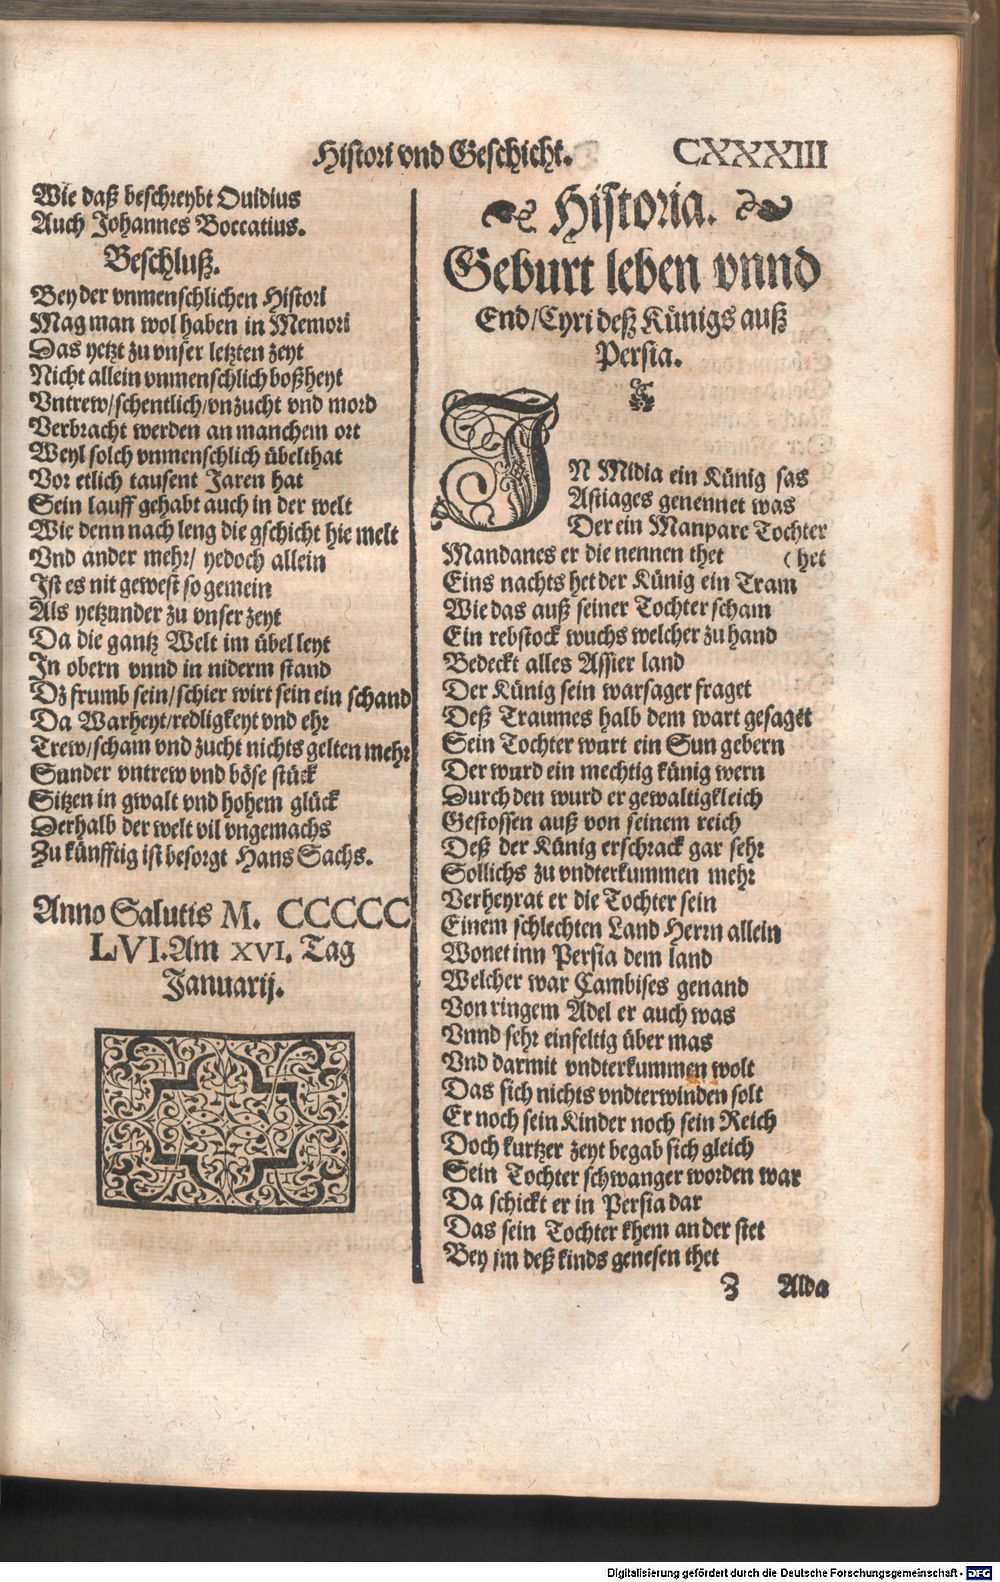 Histori vnd Geschicht. CXXXIII
Wie daß beschreybt Ouidius
Auch Johannes Boccatius.
Beschluß.
Bey der vnmenschlichen Histori
Mag man wol haben in Memori
Das yetzt zu vnser letzten zeyt
Nicht allein vnmenschlich boßheyt
Vntrew/schentlich/vnzucht vnd mord
Verbracht werden an manchem ort
Weyl solch vnmenschlich übelthat
Vor etlich tausent Jaren hat
Sein lauff gehabt auch in der welt
Wie denn nach leng die gschicht hie melt
Vnd ander mehr/ yedoch allein
Ist es nit gewest so gemein
Als yetzunder zu vnser zeyt
Da die gantz Welt im übel leyt
In obern vnnd in niderm stand
Dz frumb sein/schier wirt sein ein schand
Da Warheyt/redligkeyt vnd ehr
Trew/scham vnd zucht nichts gelten mehr
Sunder vntrew vnd böse stück
Sitzen in gwalt vnd hohem glück
Derhalb der welt vil vngemachs
Zu künfftig ist besorgt Hans Sachs.
Anno Salutis M. CCCCC
LVI. Am XVI. Tag
Januarij.
Historia.
Geburt leben vnnd
End/Cyri deß Künigs auß
Persia.
IN Midia ein Künig sas
Astiages genennet was
Der ein Manpare Tochter
Mandanes er die nennen thet (het
Eins nachts het der Künig ein Tram
Wie das auß seiner Tochter scham
Ein rebstock wuchs welcher zu hand
Bedeckt alles Assier land
Der Künig sein warsager fraget
Deß Traumes halb dem wart gesaget
Sein Tochter wurt ein Sun gebern
Der wurd ein mechtig künig wern
Durch den wurd er gewaltigkleich
Gestossen auß von seinem reich
Deß der Künig erschrack gar sehr
Sollichs zu vndterkummen mehr
Verheyrat er die Tochter sein
Einem schlechten Land Herrn allein
Wonet inn Persia dem land
Welcher war Cambises genand
Von ringem Adel er auch was
Vnnd sehr einfeltig über mas
Vnd darmit vndterkummen wolt
Das sich nichts vndterwinden solt
Er noch sein Kinder noch sein Reich
Doch kurtzer zeyt begab sich gleich
Sein Tochter schwanger worden war
Da schickt er in Persia dar
Das sein Tochter khem an der stet
Bey jm deß kinds genesen thet
Z Alda
Digitalisierung gefördert durch die Deutsche Forschungsgemeinschaft - DFG